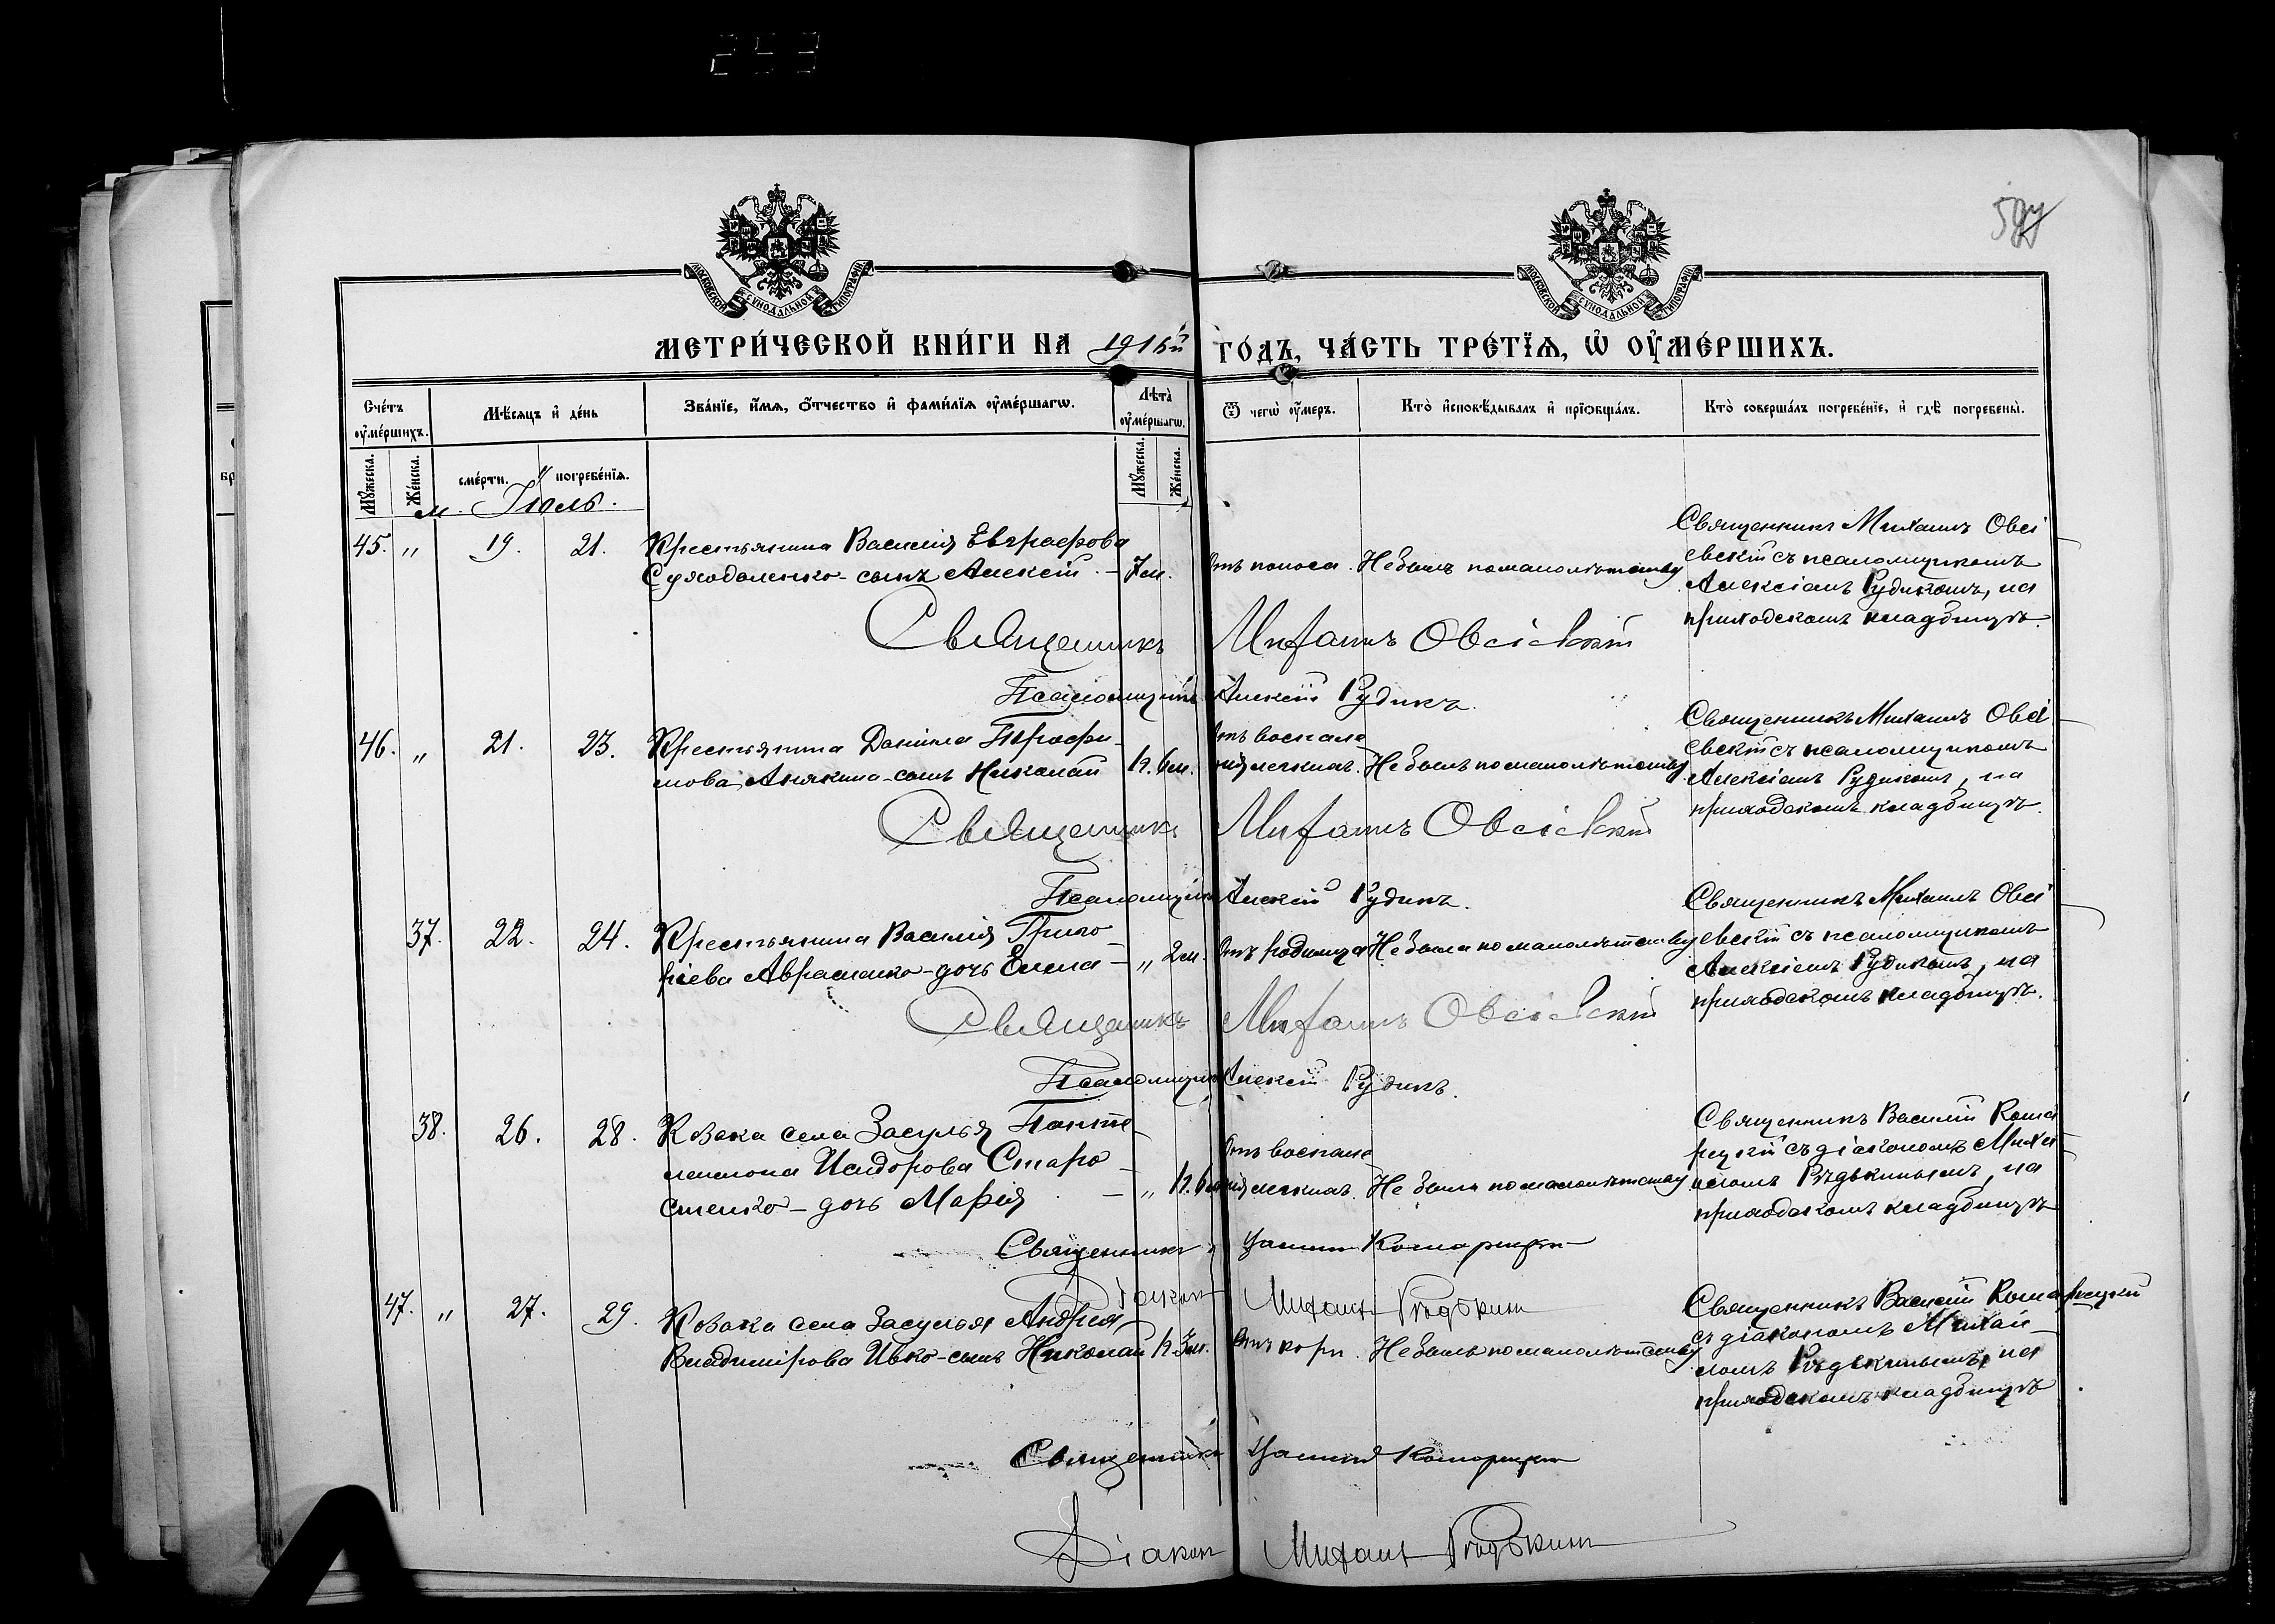 293
597
МОСКОВСКОЙ СѴНОДАЛЬНОЙ ТИПОГРАФІИ
МОСКОВСКОЙ СѴНОДАЛЬНОЙ ТИПОГРАФІИ
МЕТРИ́ЧЕСКОЙ КНИ́ГИ НА 1916й ГО́ДЪ, ЧА́СТЬ ТРЕ́ТЇѦ, Ѡ҆ ОУ҆МЕ́РШИХЪ.
Сче́тъ оу҆ме́ршихъ.
Мѣ́сѧцъ и҆ де́нь
Зва́нїе, и҆́мѧ, ѻ҆́тчество и҆ фами́лїѧ оу҆ме́ршагѡ.
Лѣ̀та оу҆ме́ршагѡ.
Ѿ чегѡ̀ оу҆́меръ.
Кто̀ и҆сповѣ́дывалъ и҆ прїѡбща́лъ.
Кто̀ соверша́лъ погребе́нїе, и҆ гдѣ̀ погребены̀.
Мꙋ́жеска.
Же́нска.
сме́рти.
погребе́нїѧ.
Мꙋ́жеска.
Же́нска.
м. Іюль.
45. " 19. 21. Крестьянина Василія Евграфова
Суходоленко - сынъ Алексій. - 7м. Отъ поноса. Не былъ по малолѣтству
Священникъ Михаилъ Овсі
евскій съ псаломщикомъ
Алексіемъ Рудикомъ, на
приходскомъ кладбищѣ.
Священникъ Михаилъ Овсіевскій
Псаломщикъ Алексій Рудикъ.
46. " 21. 23. Крестьянина Даніила Трофи-
мова Анякина - сынъ Николай 1г. 6м. Отъ воспале
нія легкихъ. Не былъ по малолѣтству
Священникъ Михаилъ Овсі
евскій съ псаломщикомъ
Алексіемъ Рудикомъ, на
приходскомъ кладбищѣ.
Священникъ Михаилъ Овсіевскій
Псаломщикъ Алексій Рудикъ.
37. 22. 24. Крестьянина Василія Григо-
ріева Авраменко - дочь Елена - " 2м. Отъ родимца Не была по малолѣтству
Священникъ Михаилъ Овсі
евскій съ псаломщикомъ
Алексіемъ Рудикомъ, на
приходскомъ кладбищѣ.
Священникъ Михаилъ Овсіевскій
Псаломщикъ Алексій Рудикъ.
38. 26. 28. Козака села Засулья Панте-
леимона Исидорова Старо-
стенко - дочь Марія. - " 1г. 6м. Отъ воспале
нія легкихъ. Не была по малолѣтству
Священникъ Василій Кома
рецкій съ діакономъ Миха-
иломъ Рѣдькинымъ, на
приходскомъ кладбищѣ
Священникъ Комарецкій
Діаконъ Михаилъ Рѣдькинъ
47. " 27. 29. Козака села Засулья Андрея
Владимірова Ивко - сынъ Николай 1г. 3м. Отъ кори. Не былъ по малолѣтству
Священникъ Василій Комарецкій
съ діакономъ Михаи-
ломъ Рѣдькинымъ, на
приходскомъ кладбищѣ
Священникъ Комарецкій
Діаконъ Михаилъ Рѣдькинъ